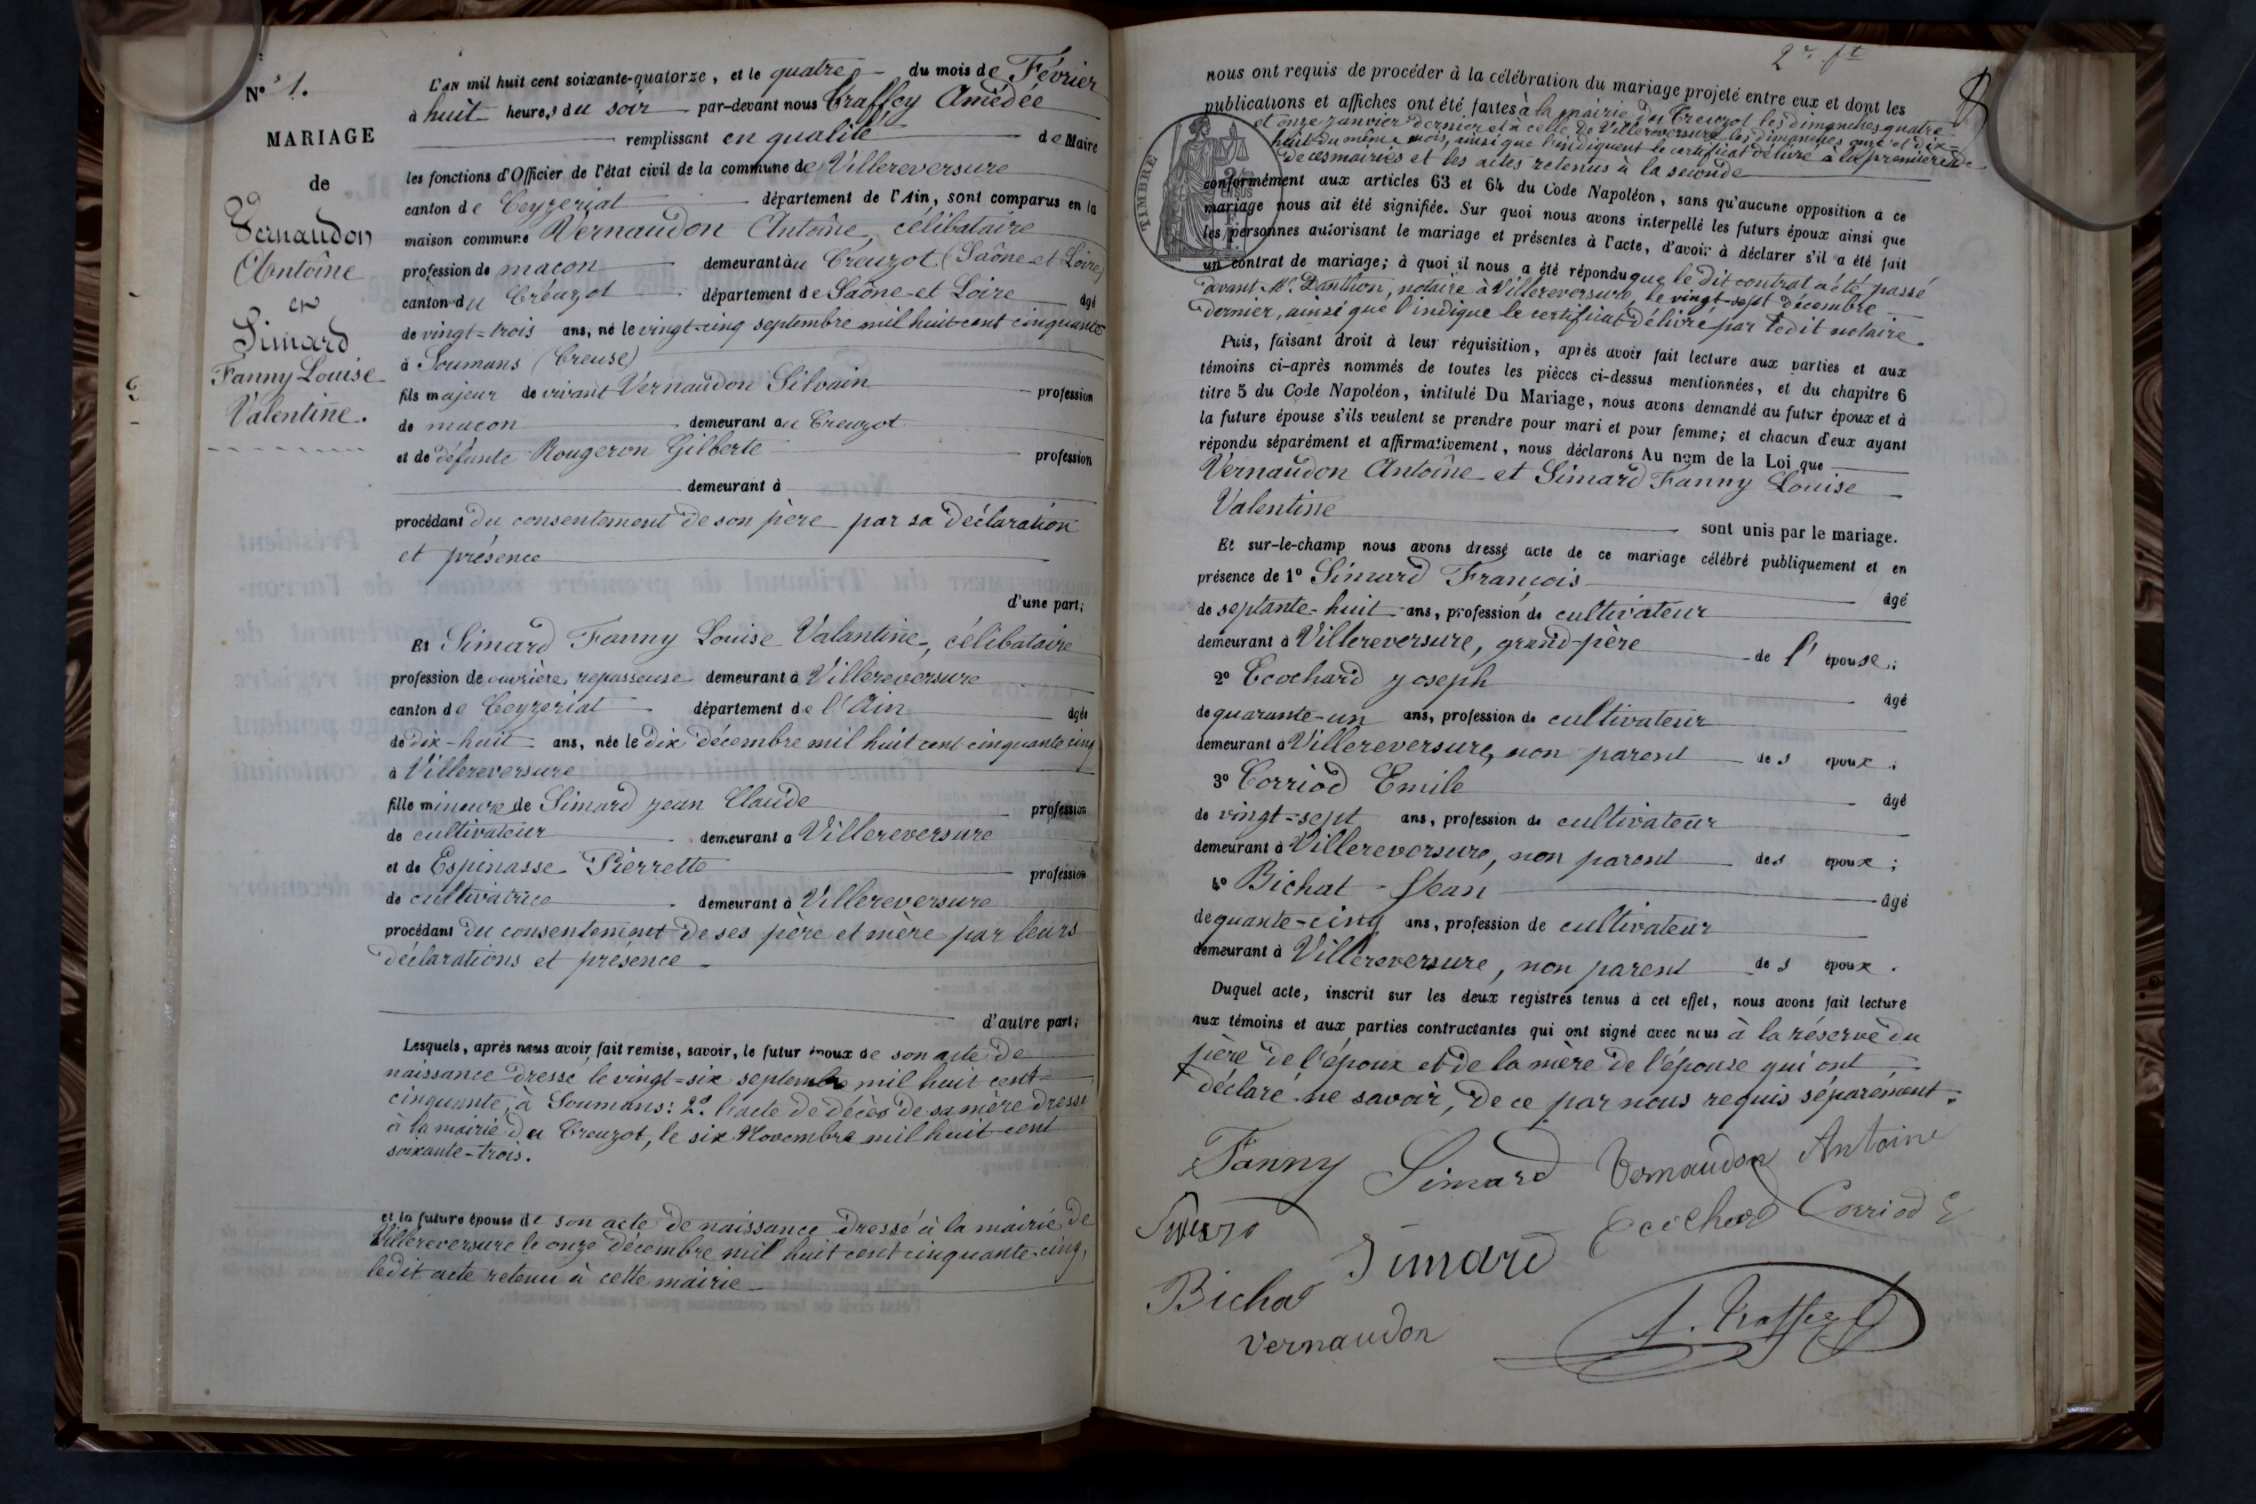 N° 1.
MARIAGE
de
Vernaudon
Antoine
et
Simard
Fanny Louise
Valentine.
L'AN mil huit cent soixante-quatorze, et le quatre du mois de Février
à huit heures du soir par-devant nous Traffey Amédée
remplissant en qualité de Maire
les fonctions d'Officier de l'état civil de la commune de Villereversure
canton de Ceyzériat département de l'Ain, sont comparus en la
maison commune Vernaudon Antoine, célibataire
profession de maçon demeurant au Creuzot (Saône et Loire)
canton du Créuzot département de Saône-et Loire âgé
de vingt=trois ans, né le vingt-cinq septembre mil huit cent cinquante
à Soumans (Creuse)
fils majeur de vivant Vernaudon Silvain profession
de maçon demeurant au Creuzot
et de défunte Rougeron Gilberte profession
demeurant à
procédant du consentement de son père par sa déclaration
et présence
d'une part;
Et Simard Fanny Louise Valantine, célibataire
profession de ouvrière repasseuse demeurant à Villereversure
canton de Ceyzeriat département de l'Ain âgée
de dix-huit ans, née le dix décembre mil huit cent cinquante cinq
à Villereversure
fille mineure de Simard jean Claude profession
de cultivateur demeurant à Villereversure
et de Espinasse Pierrette profession
de cultivatrice demeurant à Villereversure
procédant du consentement de ses père et mère par leurs
déclarations et présence
d'autre part;
Lesquels, après nous avoir fait remise, savoir, le futur époux de son acte de
naissance dressé le vingt=six septembre mil huit cent=
cinquante, à Soumans: 2° l'acte de décès de sa mère dressé
à la mairie du Creuzot, le six Novembre mil huit cent
soixante-trois.
et la future épouse de son acte de naissance dressé à la mairie de
Villereversure le onze décembre mil huit cent cinquante-cinq,
ledit acte retenu à cette mairie
nous ont requis de procéder à la célébration du mariage projeté entre eux et dont les
publications et affiches ont été faites à la mairie du Creuzot les dimanches quatre
et onze janvier dernier et à celle de Villereversure les dimanches onze et dix=
huit du même mois, ainsi que l'indiquent le certificat délivré à la première
de ces mairies et les actes retenus à la seconde
TIMBRE
conformément aux articles 63 et 64 du Code Napoléon, sans qu'aucune opposition à ce
mariage nous ait été signifiée. Sur quoi nous avons interpellé les futurs époux ainsi que
les personnes autorisant le mariage et présentes à l'acte, d'avoir à déclarer s'il a été fait
un contrat de mariage; à quoi il nous a été répondu que le dit contrat a été passé
avant Mr. Danthon, notaire à Villereversure, le vingt-sept décembre
dernier, ainsi que l'indique le certificat délivré par ledit notaire.
Puis, faisant droit à leur réquisition, après avoir fait lecture aux parties et aux
témoins ci-après nommés de toutes les pièces ci-dessus mentionnées, et du chapitre 6
titre 5 du Code Napoléon, intitulé Du Mariage, nous avons demandé au futur époux et à
la future épouse s'ils veulent se prendre pour mari et pour femme; et chacun d'eux ayant
répondu séparément et affirmativement, nous déclarons Au nom de la Loi que
Vernaudon Antoine et Simard Fanny Louise
Valentine
sont unis par le mariage.
Et sur-le-champ nous avons dressé acte de ce mariage célébré publiquement et en
présence de 1° Simard François âgé
de septante-huit ans, profession de cultivateur
demeurant à Villereversure, grand-père de l' épouse;
2° Ecochard joseph âgé
de quarante-un ans, profession de cultivateur
demeurant à Villereversure, non parent des époux;
3° Corriod Emile âgé
de vingt=sept ans, profession de cultivateur
demeurant à Villereversure, non parent des époux;
4° Bichat Jean âgé
de quante-cinq ans, profession de cultivateur
demeurant à Villereversure, non parent des époux.
Duquel acte, inscrit sur les deux registres tenus à cet effet, nous avons fait lecture
aux témoins et aux parties contractantes qui ont signé avec nous à la réserve du
père de l'époux et de la mère de l'épouse qui ont
déclaré ne savoir, de ce par nous requis séparément.
Fanny Simard Vernaudon Antoine
Simard Ecochard Corriod E
Bichat
vernaudon
A. Traffey